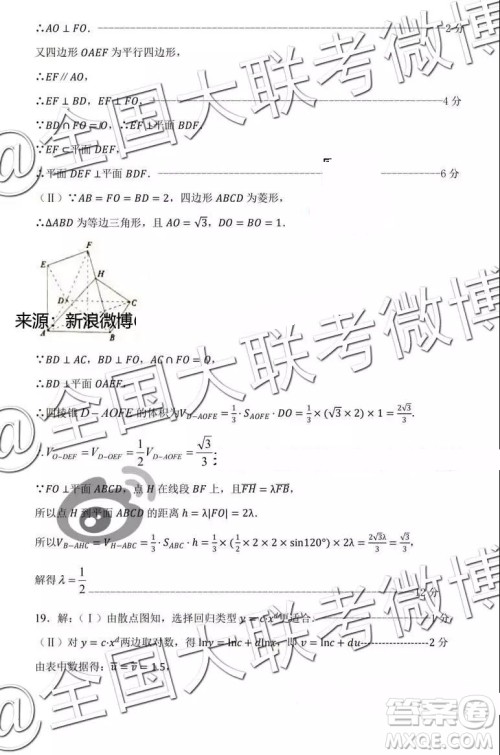 ∴AO⊥FO. ---2 分
又四边形 OAEF 为平行四边形,
∴EF∥AO,
∴EF⊥BD, EF⊥FO, ---4 分
∵BD∩FO=O, ∴EF⊥平面 BDF.
∵EF⊂平面 DEF,
∴平面 DEF⊥平面 BDF. ---6 分
(Ⅱ) ∵AB=FO=BD=2, 四边形 ABCD 为菱形,
∴ΔABD 为等边三角形, 且 AO=√3, DO=BO=1.
F
E
H
D
C
A
B
来源: 新浪微博
∵BD⊥AC, BD⊥FO, AC∩FO=O,
∴BD⊥平面 OAEF.
∴四棱锥 D-AOFE 的体积为V_{D-AOFE}=1/3·S_{AOFE}·DO=1/3×(√3×2)×1=2√3/3.
∴V_{O-DEF}=V_{D-OEF}=1/2 V_{D-AOFE}=√3/3;
∵FO⊥平面 ABCD, 点 H 在线段 BF 上, 且FH=λFB,
所以点 H 到平面 ABCD 的距离 h=λ|FO|=2λ.
所以V_{B-AHC}=V_{H-ABC}=1/3·S_{ABC}·h=1/3×(1/2×2×2×sin120°)×2λ=2√3λ/3=√3/3,
解得 λ=1/2 ---12 分
19. 解: (Ⅰ) 由散点图知, 选择回归类型 y=c·x^d更适合. ---1 分
(Ⅱ) 对 y=c·x^d两边取对数, 得 lny=lnc+dlnx, 即 v=lnc+du---2 分
由表中数据得: u=v=1.5,
@全国大联考微博
@全国大联考微博
@全国大联考微博
答案圈
MXQE.COM